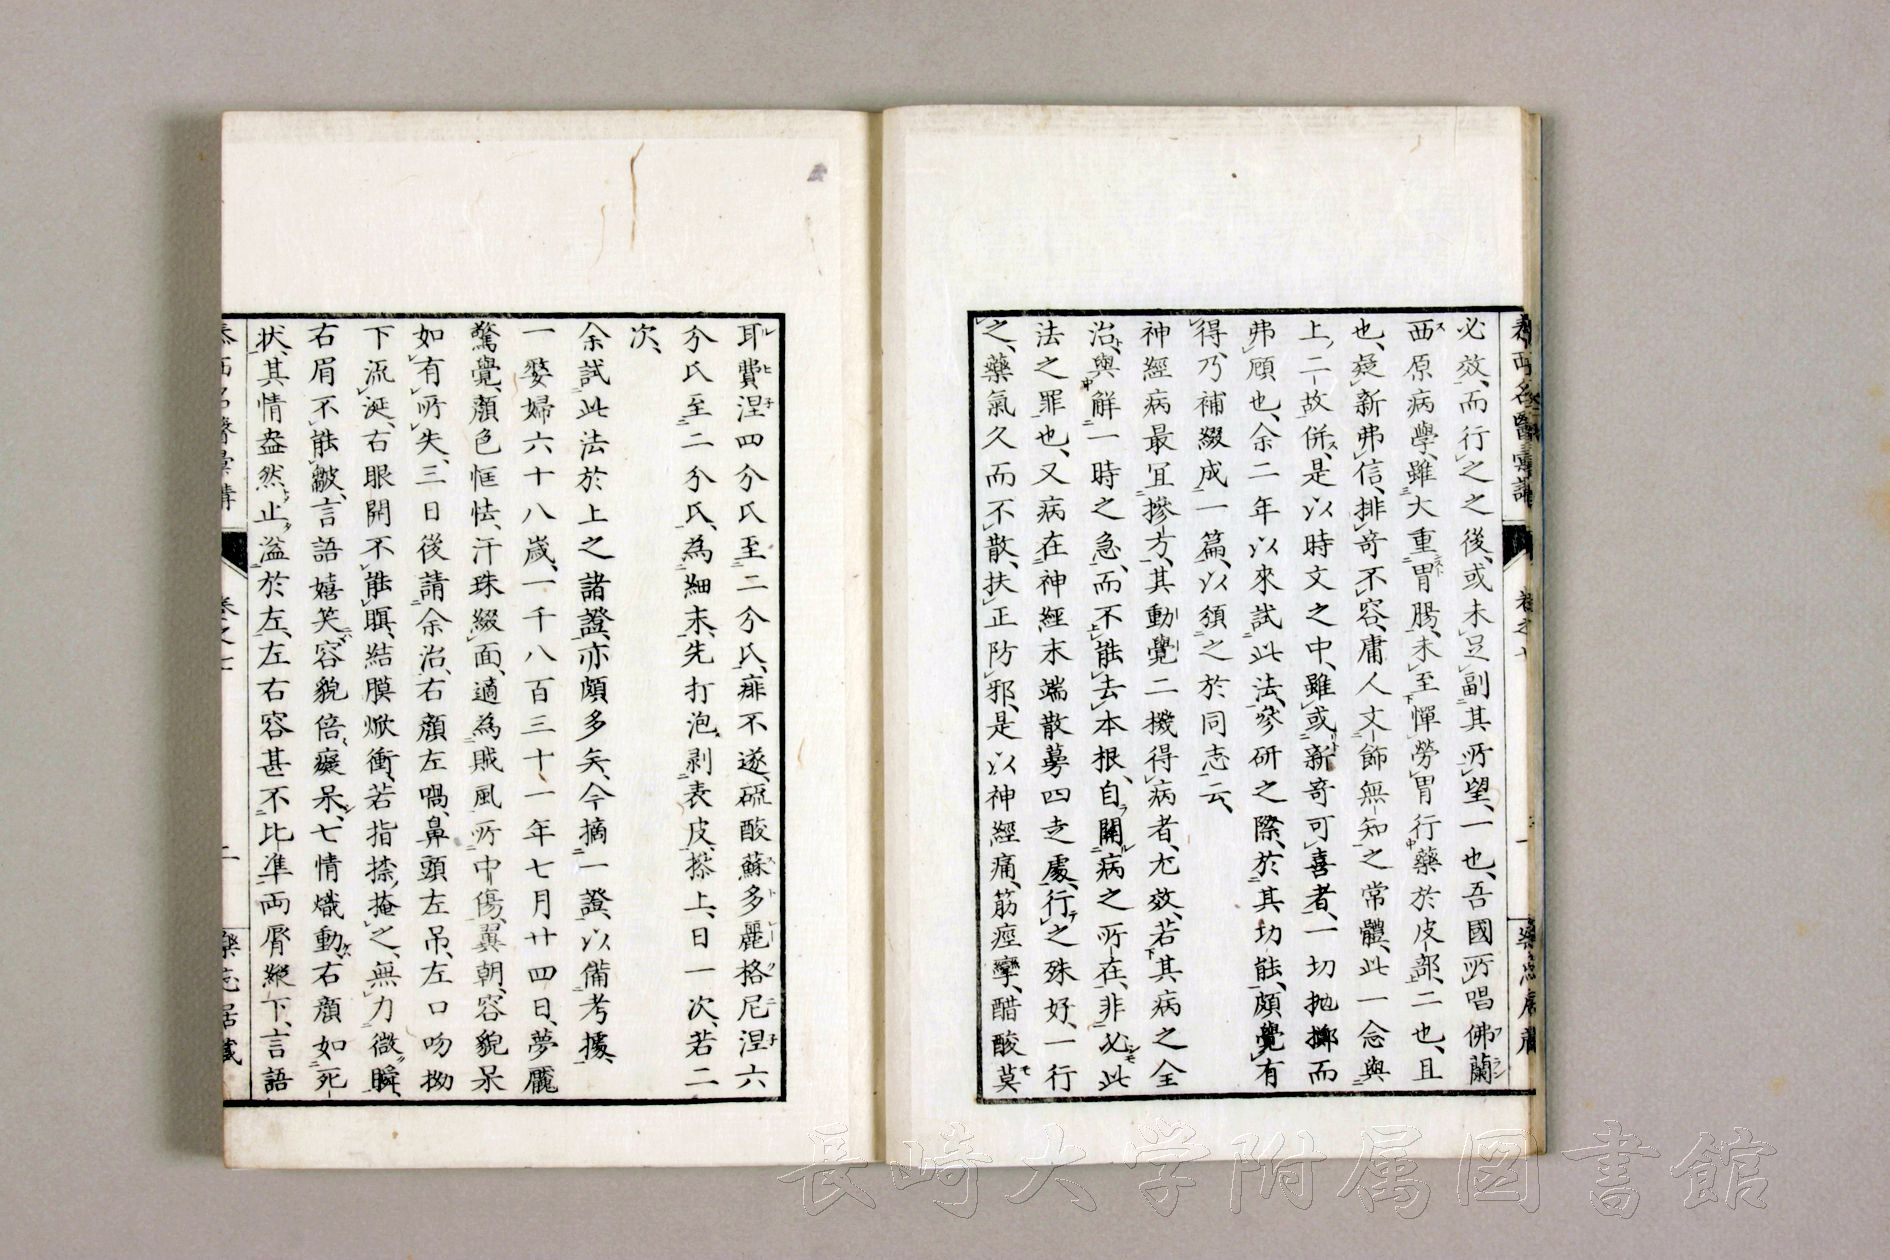 必效、而行之之後、或未足副其所望、一也、吾國所唱佛蘭
西原病學、雖大重胃腸、未至憚勞胃行藥於皮部、二也、且
也、疑新弗信、排奇不容、庸人文飾無知之常體、此一念與
上二故併、是以時文之中、雖或新奇可喜者、一切拋擲而
弗顧也、余二年以來試此法、參研之際、於其功能、頗覺有
得、乃補綴成一篇、以頒之於同志云、
神經病最宜摻方、其動覺二機得病者、尤效、若其病之全
治、與解一時之急、而不能去本根、自關病之所在、非必此
法之罪也、又病在神經末端散蔓四走處、行之殊好、一行
之、藥氣久而不散、扶正防邪、是以神經痛、筋痙攣、醋酸莫
耳費涅四分氏至二分氏、痱不遂、硫酸蘇多麗格尼涅六
分氏至二分氏、為細末、先打泡剝表皮、摻上、日一次、若二
次、
余試此法於上之諸證、亦頗多矣、今摘一證、以備考據、
一嫠婦六十八歲、一千八百三十一年七月廿四日、夢魘
驚覺、顏色恇怯、汗珠綴面、適為賊風所中傷、翼朝、容貌呆
如有所失、三日後請余治、右顏左喎、鼻頭左吊、左口吻拗
下流涎、右眼開不能瞑、結膜焮衝、若指捺掩之、無力微瞬、
右眉不能皺、言語嬉笑、容貌倍癡呆、七情熾動、右顏如死
狀、其情盎然、止溢於左、左右容甚不比準、兩脣緃下、言語
泰西名醫彙講
卷之七
二
藥志居藏